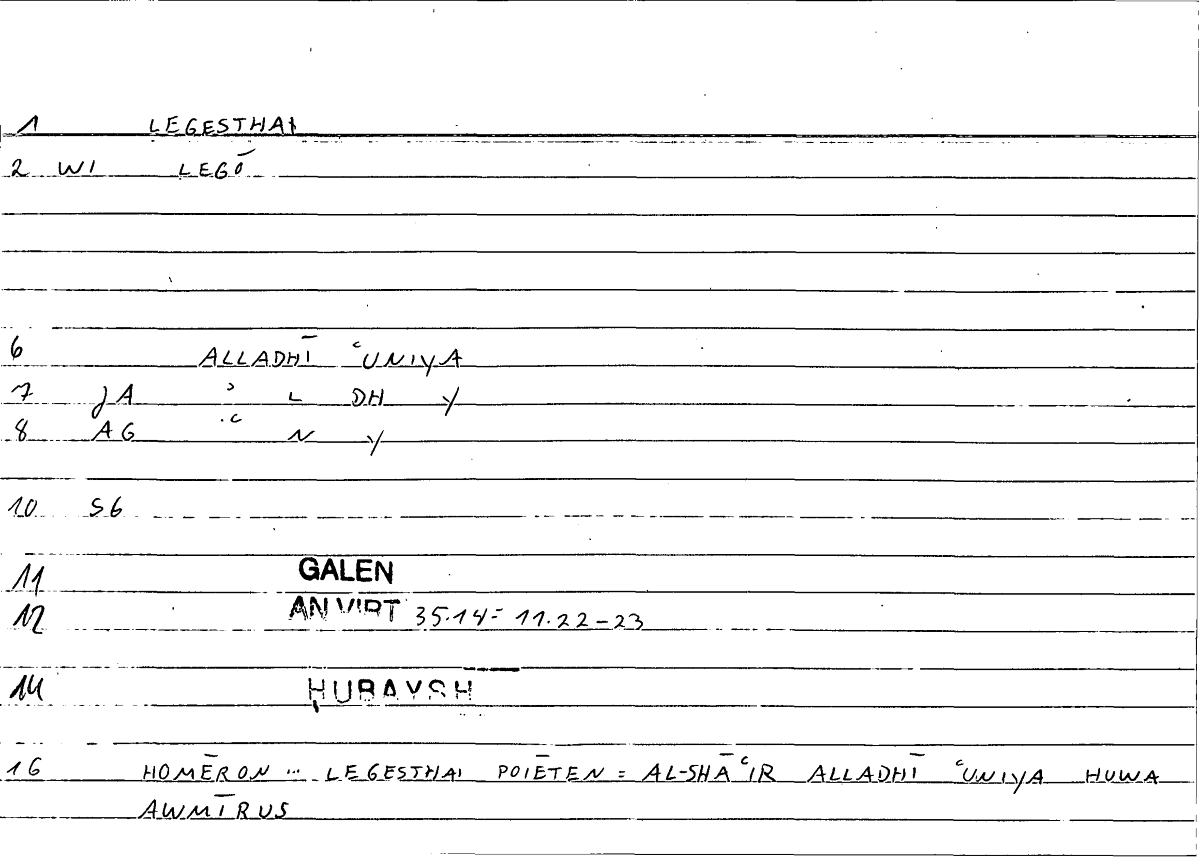 1 LEGESTHAI
2 WI LEGŌ
6 ALLADHĪ ʿUNIYA
7 JA ʾ L DH Y
8 AG ʿ N Y
10 S6
11 GALEN
12 AN VIRT 35.14 = 11.22-23
14 ḤUBAYSH
16 HOMĒRON ... LEGESTHAI POIĒTEN = AL-SHĀʿIR ALLADHĪ ʿUNIYA HUWA
AWMĪRUS